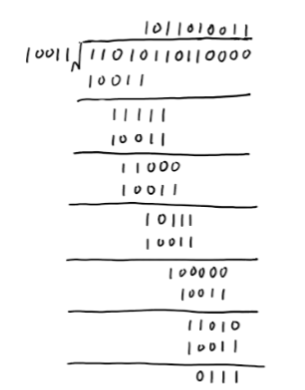 1011010011
10011√11010110110000
10011
11111
10011
11000
10011
10111
10011
100000
10011
11010
10011
0111